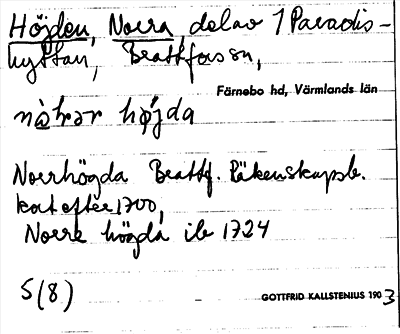 Höjden, Norra, delar 1 Paradis-
hyttan, Brattfors sn,
Färnebo hd, Värmlands län
nòhrar hø̀jda
Norrhögda Brattf. Räkenskapsb.
kort efter 1700,
Norre högda ib 1724
S (8)
GOTTFRID KALLSTENIUS 1903